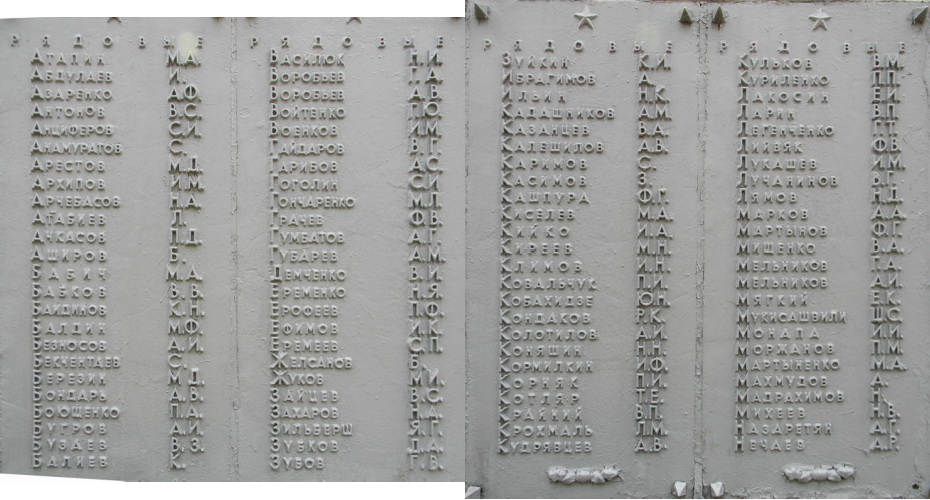 РЯДОВЫЕ
АТАПИН М.А.
АБДУЛАЕВ И.
АЗАРЕНКО А.Ф.
АНТОНОВ В.С.
АНЦИФЕРОВ С.И.
АНАМУРАТОВ С.
АРЕСТОВ М.П.
АРХИПОВ И.М.
АРЧЕБАСОВ Н.А.
АГАБИЕВ Л.
АЧКАСОВ П.Д.
АШИРОВ Б.
БАБИЧ М.А.
БАБКОВ В.В.
БАИДИНОВ К.Н.
БАЛДИН М.Ф.
БЕЗНОСОВ А.И.
БЕКЧЕНТАЕВ С.
БЕРЕЗИН М.Д.
БОНДАРЬ Д.В.
БОЮЩЕНКО П.А.
БУГРОВ А.И.
БУЗАЕВ В.З.
БАЛИЕВ К.
РЯДОВЫЕ
ВАСИЛОК П.И.
ВОРОБЬЕВ Г.А.
ВОРОБЬЕВ А.В.
ВОЙТЕНКО П.Ю.
ВОЕНКОВ И.М.
ГАЙДАРОВ В.Г.
ГАРИБОВ А.С.
ГОГОЛИН С.И.
ГОНЧАРЕНКО М.Л.
ГРАЧЕВ Ф.В.
ГУМБАТОВ А.Г.
ГУБАРЕВ И.М.
ДЕМЧЕНКО В.И.
ЕРЕМЕНКО Д.Я.
ЕРОФЕЕВ П.Ф.
ЕФИМОВ И.К.
ЕРЕМЕЕВ С.П.
ЖЕЛСАНОВ Б.
ЖУКОВ М.И.
ЗАЙЦЕВ В.С.
ЗАХАРОВ Н.А.
ЗИЛЬБЕРЩ Я.Г.
ЗУБКОВ Д.А.
ЗУБОВ Г.В.
РЯДОВЫЕ
ЗУЙКИН К.И.
ИБРАГИМОВ А.
ИЛЬИН П.К.
КАЛАШНИКОВ А.М.
КАЗАНЦЕВ В.А.
КАЛЕШИЛОВ А.В.
КАРИМОВ С.
КАСИМОВ З.
КАШПУРА Ф.Г.
КИСЕЛЕВ М.А.
КИЙКО И.А.
КИРЕЕВ М.Н.
КЛИМОВ И.П.
КОВАЛЬЧУК П.И.
КОБАХИДЗЕ Ю.Н.
КОНДАКОВ Р.К.
КОЛОТИЛОВ А.И.
КОНЯШИН Н.П.
КОРМИЛКИН И.Ф.
КОРНЯК П.И.
КОТЛЯР Т.Е.
КРАЙНИЙ В.П.
КРОХМАЛЬ Л.М.
КУДРЯВЦЕВ А.В.
РЯДОВЫЕ
КУЛЬКОВ В.М.
КУРИЛЕНКО П.П.
ЛАХОСИН Е.И.
ЛАРИН В.П.
ЛЕГЕНЧЕНКО Г.Т.
ЛИЙВЯК Ф.В.
ЛУКАШЕВ И.М.
ЛУЧАНИНОВ В.Г.
ЛЯМОВ Н.Д.
МАРКОВ А.А.
МАРТЫНОВ Ф.Г.
МИЩЕНКО В.А.
МЕЛЬНИКОВ Г.А.
МЕЛЬНИКОВ А.И.
МЯГКИЙ Е.К.
МУКИСАШВИЛИ Ш.С.
МОНАПА И.И.
МОРЖАНОВ П.М.
МАРТЫНЕНКО М.А.
МАХМУДОВ А.
МАДРАХИМОВ А.
МИХЕЕВ Н.В.
НАЗАРЕТЯН А.Г.
НЕЧАЕВ А.Р.